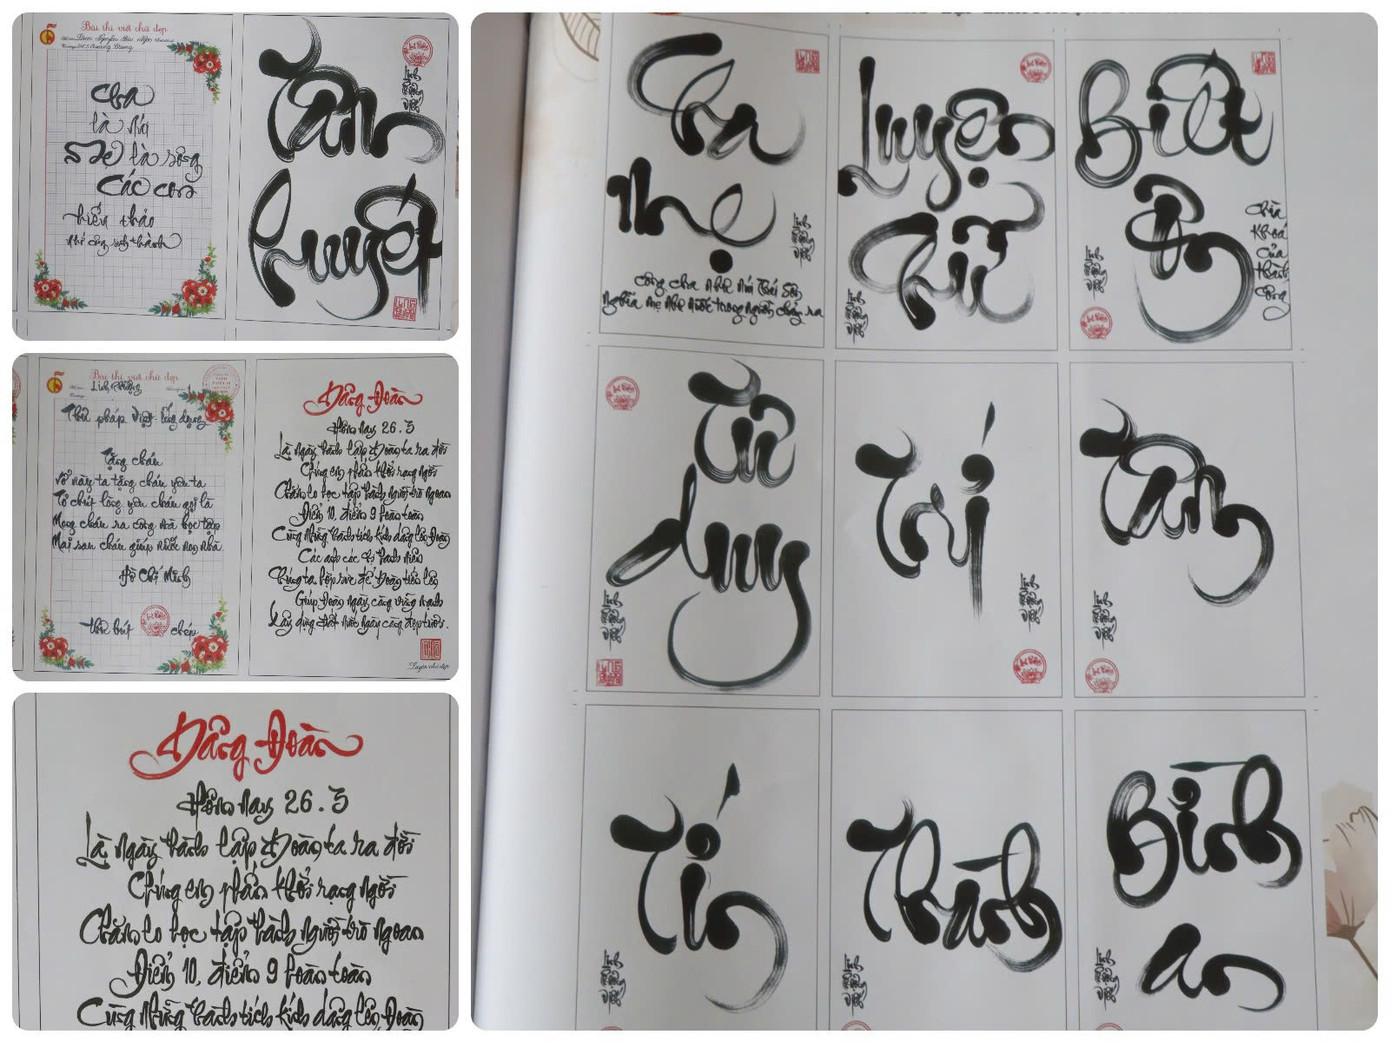 Bài thi viết chữ đẹp
Cha
là núi
Mẹ là sông
Các con
hiếu thảo
nhớ công sinh thành
Tâm
Huyết
Bài thi viết chữ đẹp
Thư pháp Việt ứng dụng
Tặng cháu
Vở này ta tặng cháu yêu ta
Tỏ chút lòng yêu cháu gọi là
Mong cháu ra công mà học tập
Mai sau cháu giúp nước non nhà
Hồ Chí Minh
Thủ bút
Dâng Đoàn
Hôm nay 26.3
Là ngày thành lập Đoàn ta ra đời
Chúng em phấn khởi rạng ngời
Chăm lo học tập thành người trò ngoan
Điểm 10, điểm 9 hoàn toàn
Cùng những thành tích kính dâng lên Đoàn
Các anh các chị thanh niên
Chúng ta hợp sức để Đoàn tiến lên
Giúp Đoàn ngày càng vững mạnh
Xây dựng đất nước ngày càng đẹp tươi.
Luyện chữ đẹp
Dâng Đoàn
Hôm nay 26.3
Là ngày thành lập Đoàn ta ra đời
Chúng em phấn khởi rạng ngời
Chăm lo học tập thành người trò ngoan
Điểm 10, điểm 9 hoàn toàn
Cùng những thành tích kính dâng lên Đoàn
Cha
Mẹ
Công cha như núi Thái Sơn
Nghĩa mẹ như nước trong nguồn chảy ra
Luyện
Chữ
Biết
Ơn
Chìa
khoá
của
thành
công
Tư
duy
Trí
Tâm
Tín
Thành
Bình
an